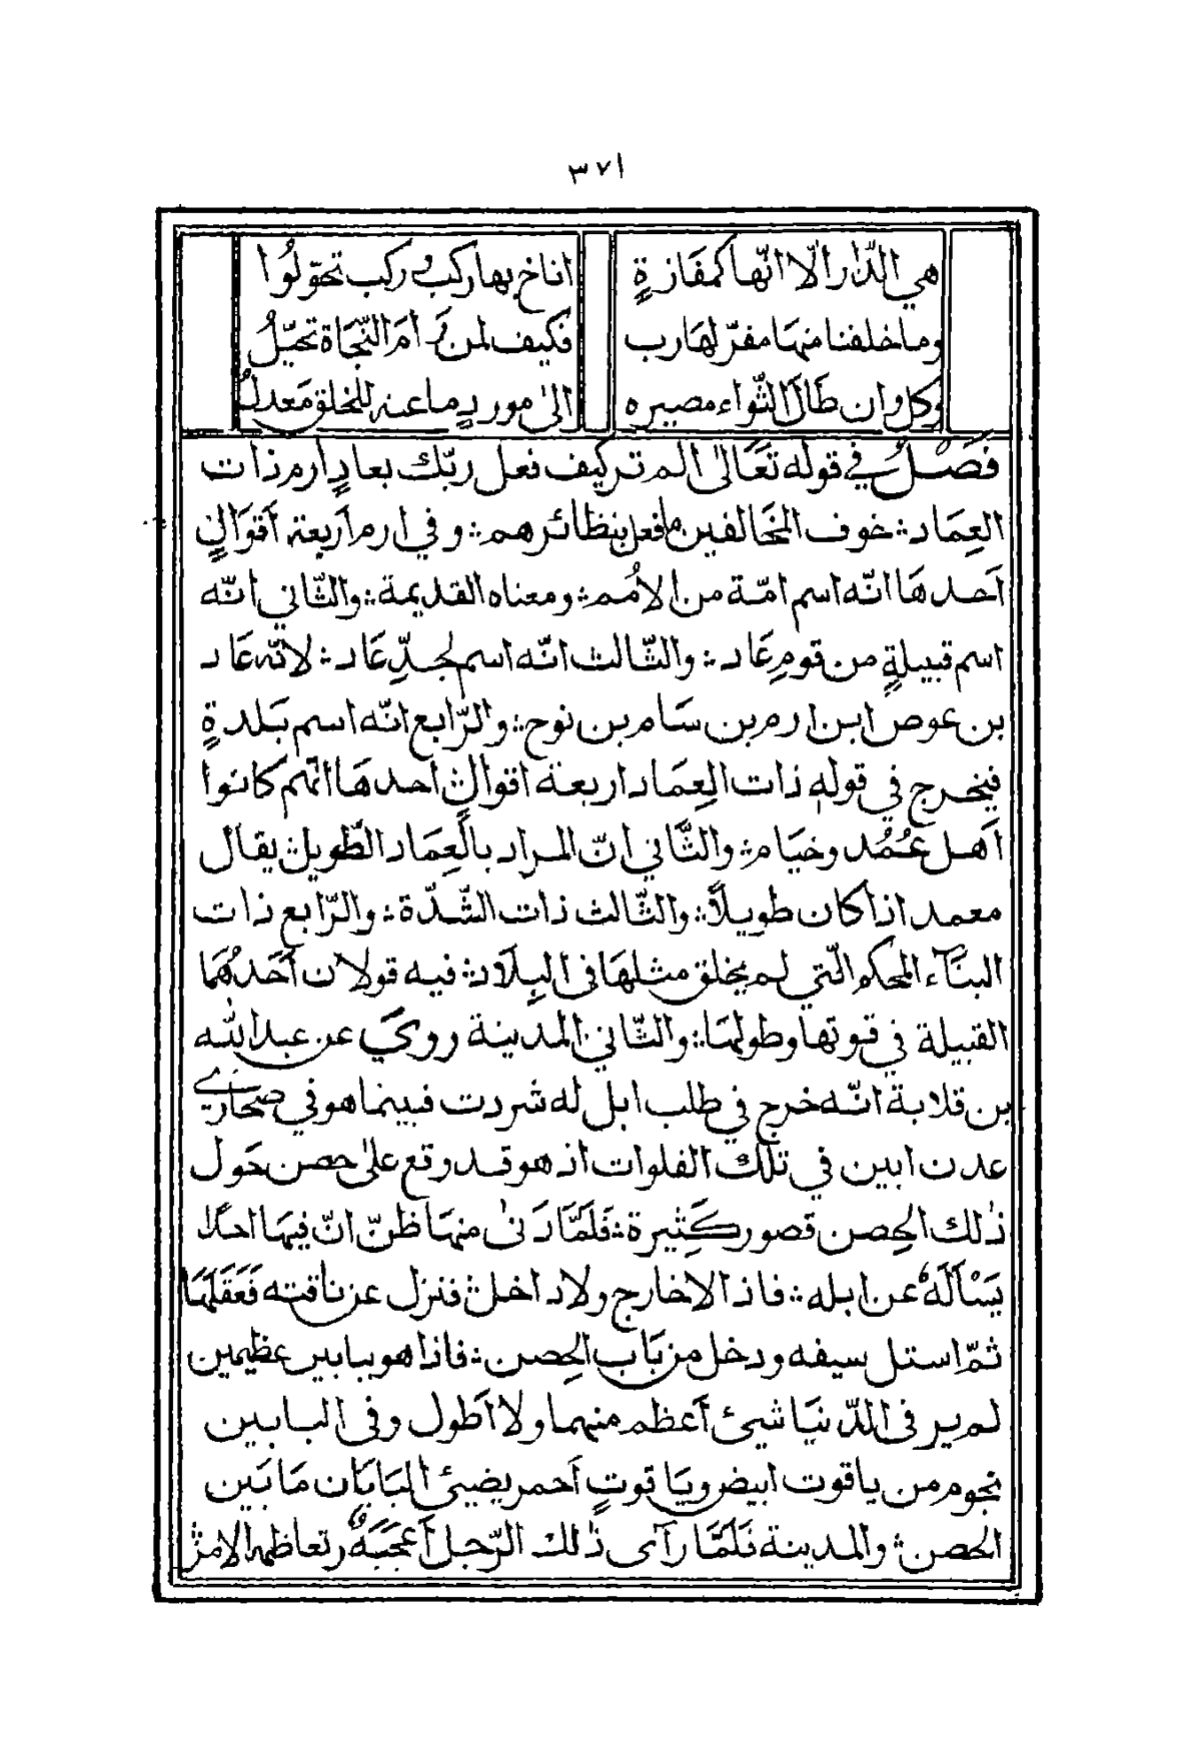 ٣٧١
هي الدّار الّا انّها كمفازةٍ اناخ بها ركب و ركب تحوّلوُا
وما خلفنا منهَا مفرّ لهَارب فكيف لمن رَامَ النّجَاة تحيّلُ
وكل وان طَالَ الثّواء مصيره الىٰ موردٍ ما عنه للخلق مَعدلُ
فَصَلٌ في قوله تعَالىٰ الم تر كيف فعل ربّك بعادٍ ارم ذات
العِمَاد؞ خوف المخَالفين ما فعل بنظائرهم؞ و في ارم أربعة أقوَالٍ
اَحدهَا انّه اسم امّة من الامُم؞ ومعناه القديمة؞ والثّاني انّه
اسم قبيلةٍ من قومِ عَاد؞ والثّالث انّه اسم لجدِّ عَاد؞ لانّه عَاد
بن عوص ابن ارم بن سَام بن نوح؞ والرّابع انّه اسم بَلدةٍ
فيخرج في قوله ذات العِمَاد اربعة اقوالٍ؞ احدهَا انّهم كانوا
اَهل عُمُد وخيَام؞ والثَّاني انّ المراد بالعِمَاد الطّويل؞ يقال
معمد اذا كان طويلاً؞ والثّالث ذات الشّدّة؞ والرّابع ذات
البنَآء المحكم الّتي لم يخلق مثلهَا في البِلَاد؞ فيه قولان أَحَدهُمَا
القبيلة في قوتها وطولهَا؞ والثّاني المدينة رويَ عن عبد الله
بن قلابة انّه خرج في طلب ابل له شردت فبينما هو في صحَارى
عدن ابين في تلك الفلوات اذ هو قد وقع علىٰ حصن حَول
ذٰلك الحِصن قصور كَثِيرة؞ فَلَمَّا دَنىٰ منهَا ظنّ انّ فيهَا احدًا
يَسْأَلَهُ عن ابله؞ فاذا لا خارج ولا داخل؞ فنزل عن ناقته فَعَقَلَهَا
ثمّ استل سيفه ودخل من بَاب الحِصن؞ فاذا هو ببابين عظيمين
لم ير في الدّنيَا شيئ أعظم منهما ولا اَطول وفي البابين
نجوم من ياقوت ابيض ويَاقوتٍ أحمر يضيئ البَابَان مَا بَين
الحصن؞ والمدينة فَلَمَّا رَآى ذٰلك الرّجل أَعجَبَهُ وتعاظمه الامر؞